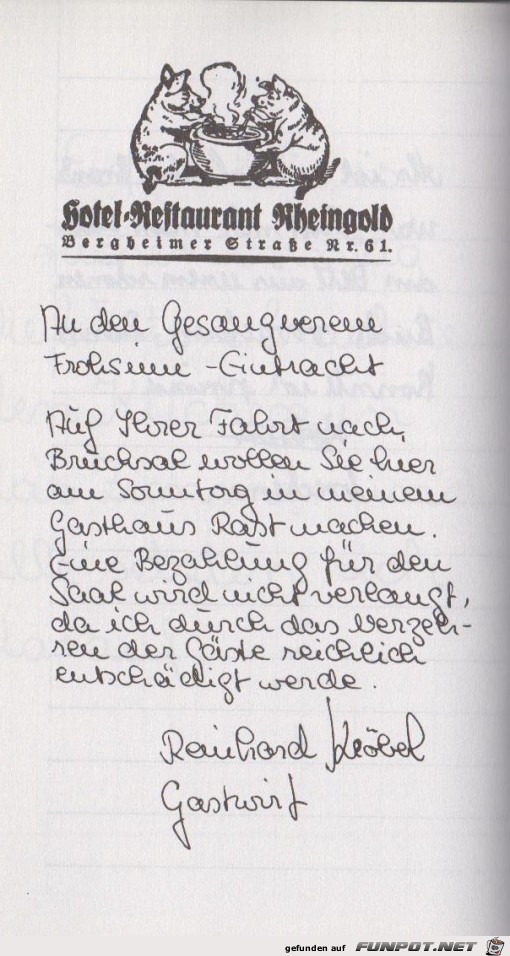 Hotel-Restaurant Rheingold
Bergheimer Straße Nr. 61.
An den Gesangverein
Frohsinn - Eintracht
Auf Ihrer Fahrt nach
Bruchsal wollen Sie hier
am Sonntag in meinem
Gasthaus Rast machen.
Eine Bezahlung für den
Saal wird nicht verlangt,
da ich durch das Verzeh-
ren der Gäste reichlich
entschädigt werde.
Reinhard Kröbel
Gastwirt
gefunden auf FUNPOT.NET